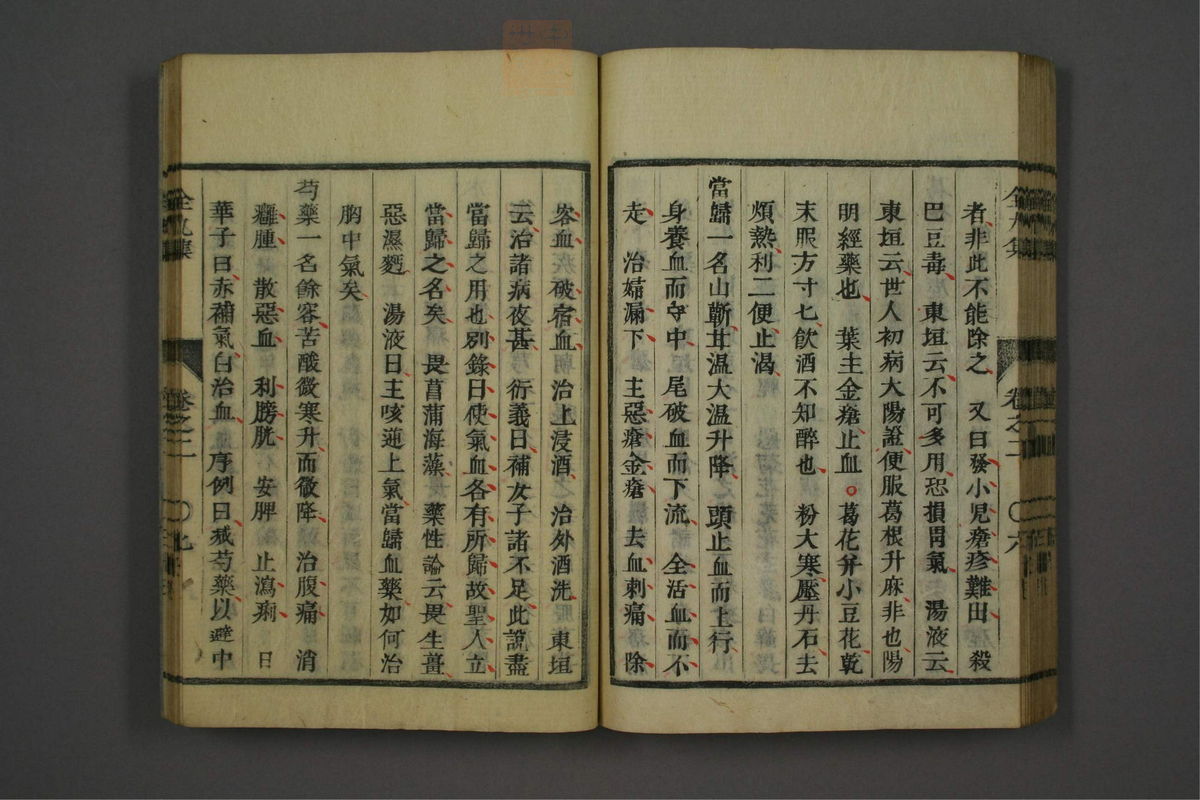 者非此不能除之 又曰發小児瘡疹難出 殺
巴豆毒 東垣云不可多用恐損胃氣 湯液云
東垣云世人初病大陽證便服葛根升麻非也陽
明經藥也 葉主金瘡止血。葛花并小豆花乾
末服方寸匕飲酒不知醉也 粉大寒壓丹石去
煩熱利二便止渴
當歸一名山蘄甘温大温升降 頭止血而上行
身養血而守中 尾破血而下流 全活血而不
走 治婦漏下 主惡瘡金瘡 去血刺痛 除
客血 破宿血 治上浸酒 治外酒洗 東垣
云治諸病夜甚 衍義曰補女子諸不足此説盡
當歸之用也别錄曰使氣血各有所歸故聖人立
當歸之名矣 畏菖蒲海藻 藥性論云畏生薑
惡濕麪 湯液曰主咳逆上氣當歸血藥如何治
胸中氣矣
芍藥一名餘容苦酸微寒升而微降 治腹痛 消
癰腫 散惡血 利膀胱 安脾 止瀉痢 日
華子曰赤補氣白治血 序例曰減芍藥以避中
全九集 卷之二 〇六
全九集 卷之二 〇七